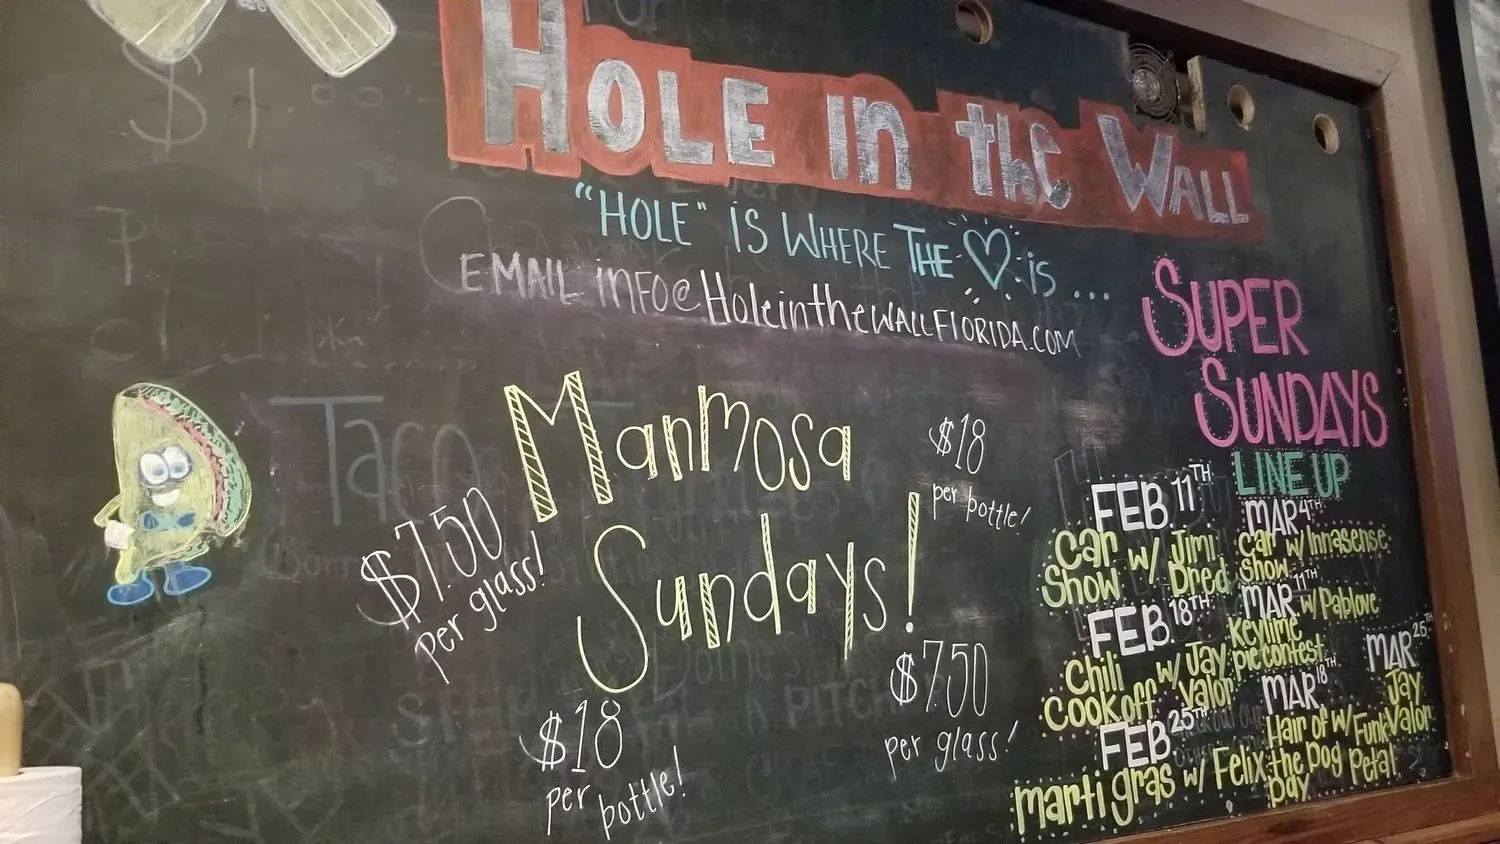 HOLE in the WALL
"HOLE" iS WHERE THE iS ...
EMAIL inFO@HoleintheWALLFlORIDA.COM
ManMosa
Sundays!
$7.50
per glass!
$18
per bottle!
$18
per bottle!
$7.50
per glass!
SUPER
SUNDAYS
LINE UP
FEB 11TH
Car Show w/ Jimi Dred
FEB. 18TH
Chili Cookoff w/ Jay Valor
FEB 25TH
marti gras w/ Felix
MAR 4TH
Car Show w/ Innasense
MAR 11TH
w/ Pablove
Keylime pie contest
MAR 18TH
Hair of the Dog Day w/ Funk Petal
MAR 25TH
Jay Valor
$1.00
Taco